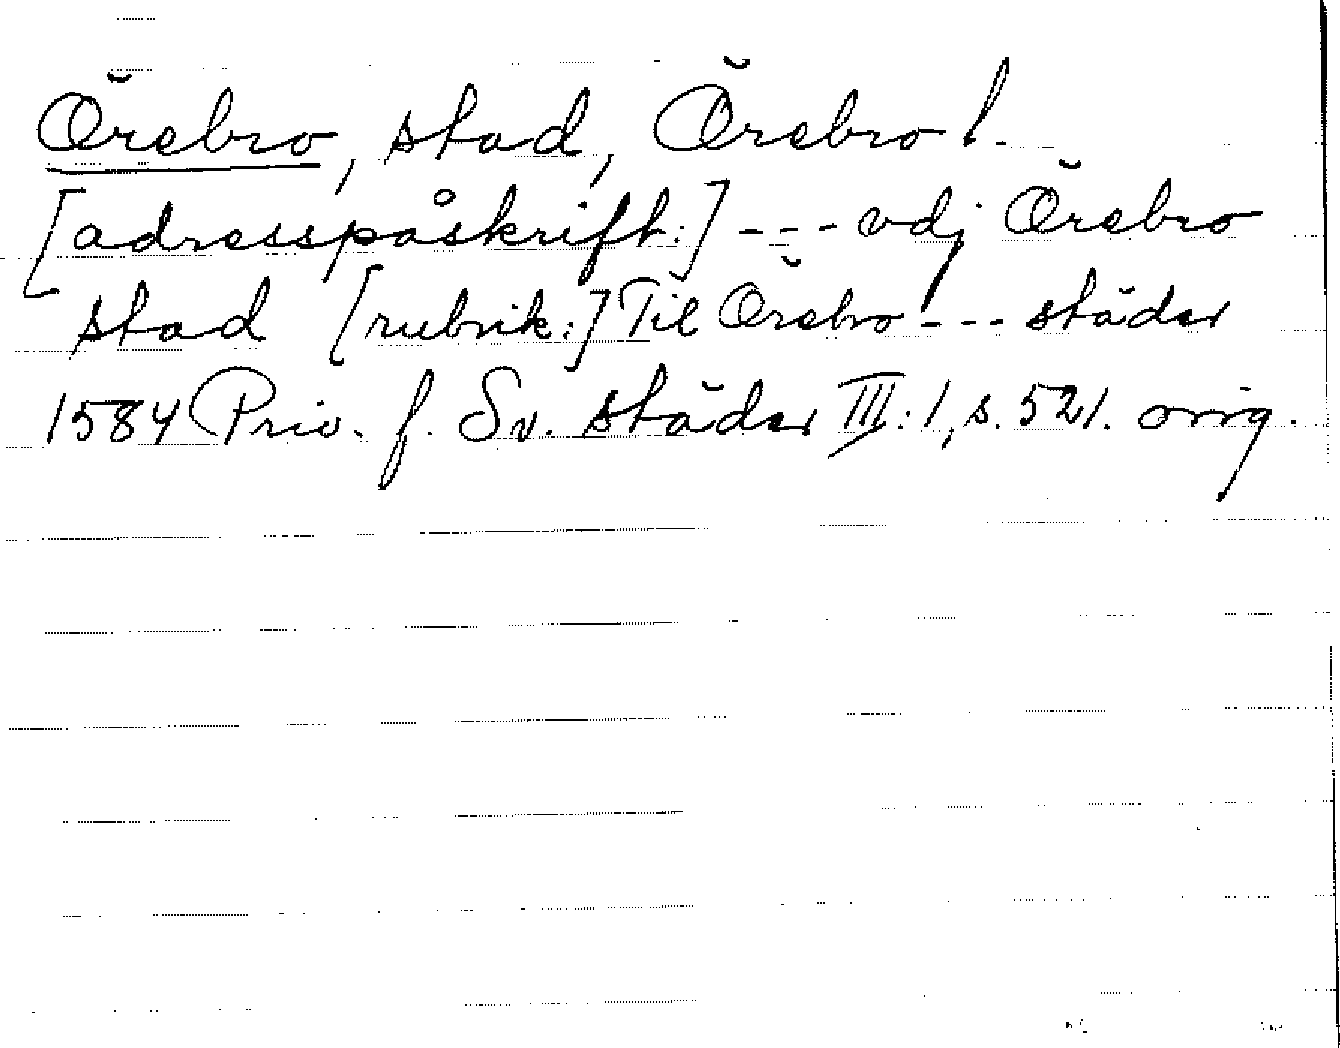 Örebro, stad, Örebro l.
[adresspåskrift:] - - - vdj Örebro
stad [rubrik:] Til Örebro - - - städer
1584 Priv. f. Sv. städer III:1, s. 521. orig.